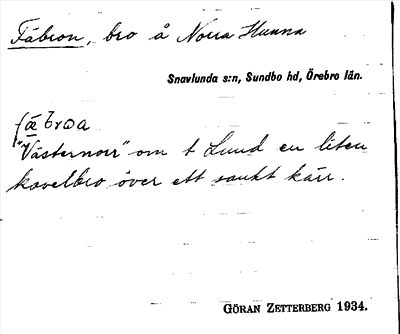 Fäbron, bro å Norra Hunna
Snavlunda s:n, Sundbo hd, Örebro län.
fæbrɷa
"Västernorr" om t Lund en liten
kavelbro över ett sankt kärr.
GÖRAN ZETTERBERG 1934.